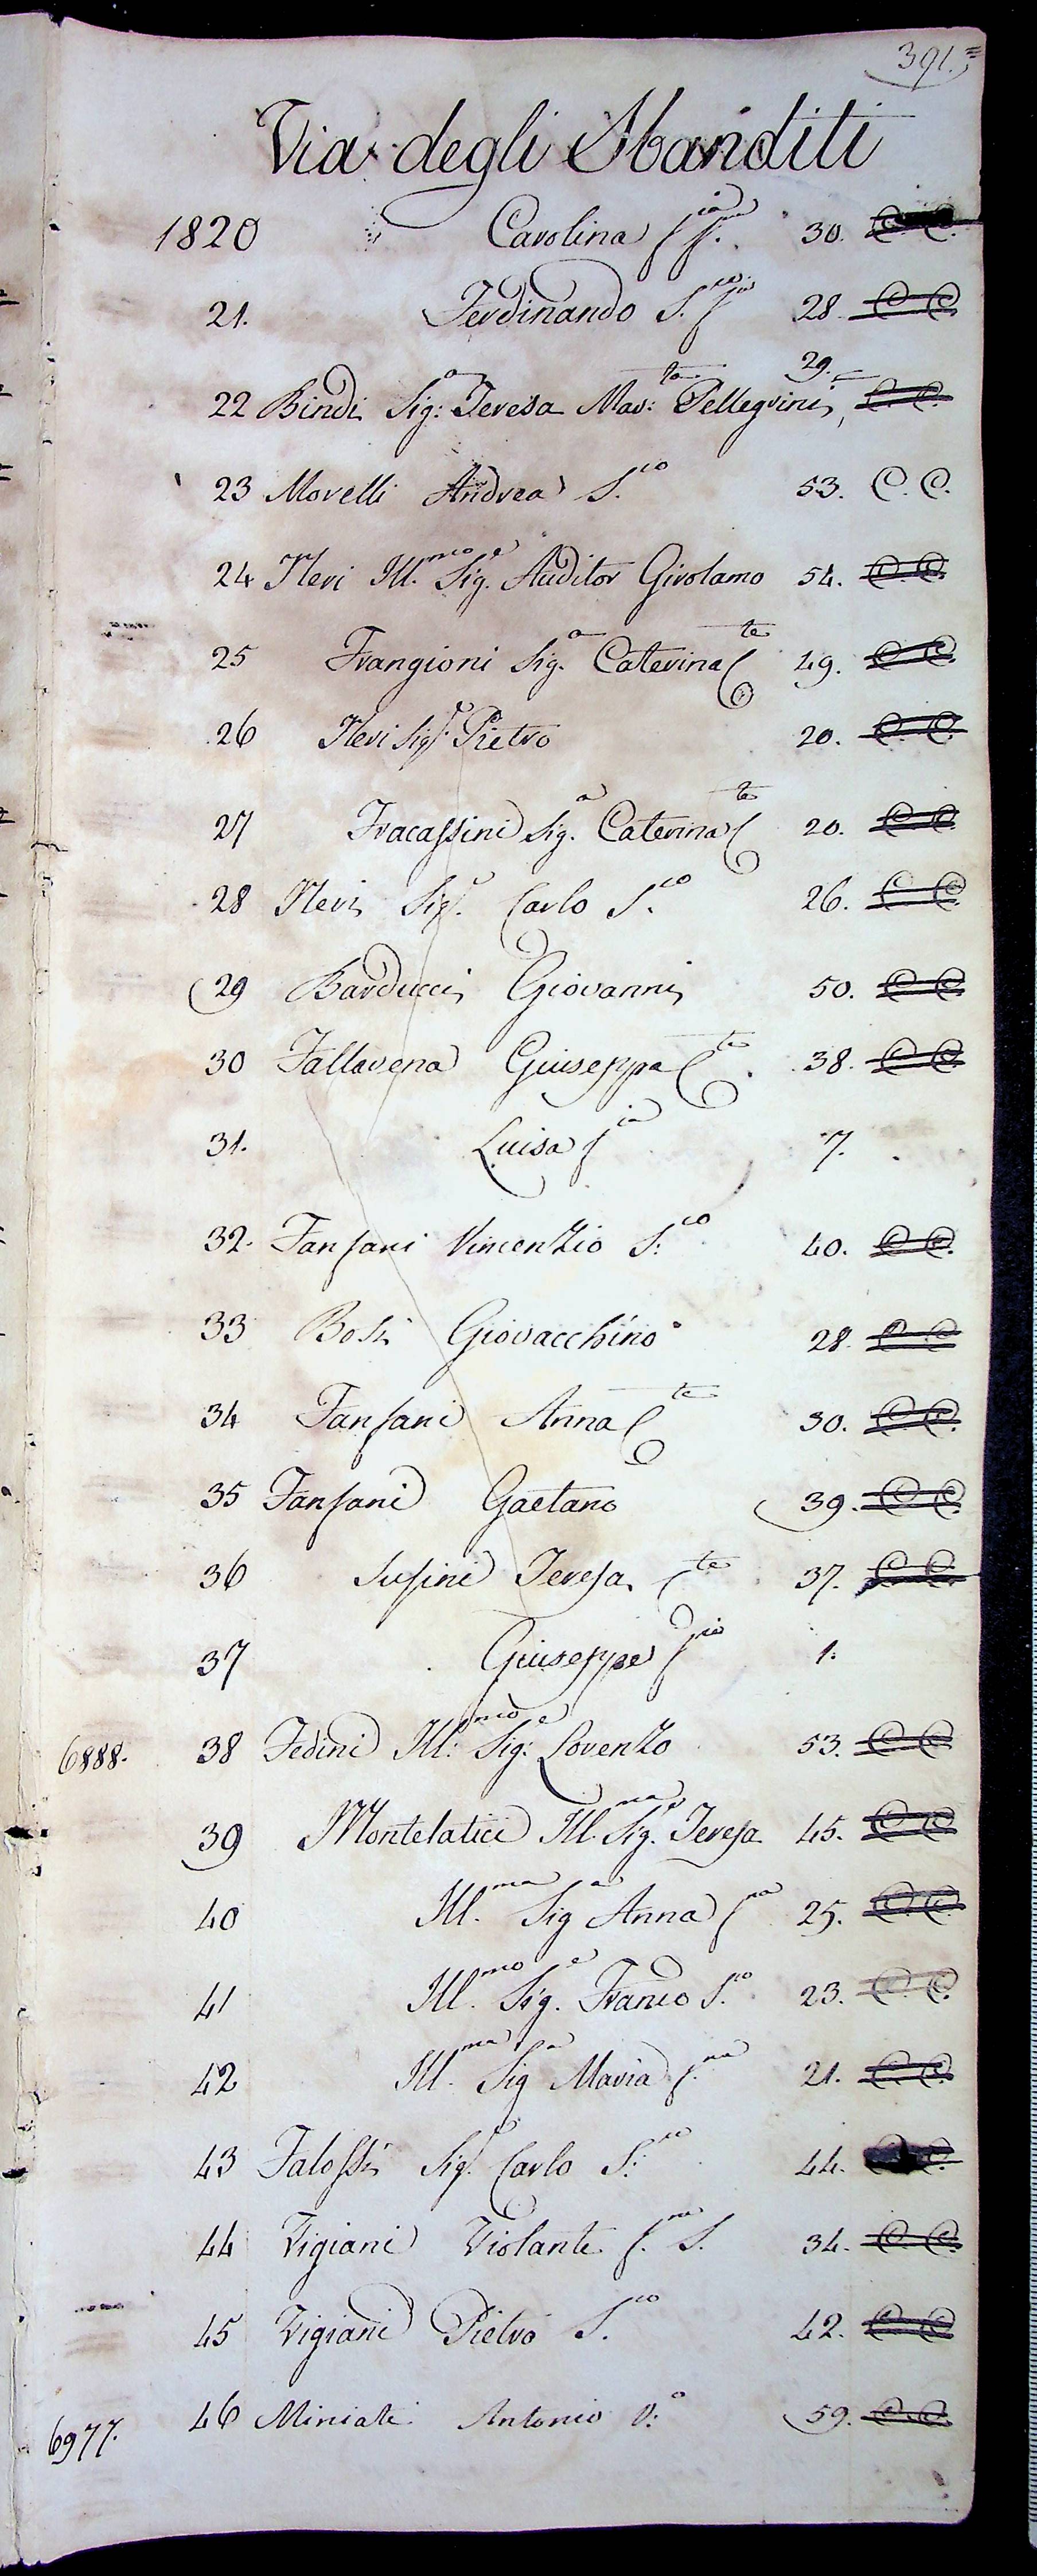 391.
Via degli Sbanditi
1820 Carolina f.ia f.na 30. C. C.
21. Ferdinando S.co f.io 28. C. C.
22 Bindi Sig:a Teresa Mar:ta Pellegrini, 29. C. C.
23 Morelli Andrea S.co 53. C. C.
24 Neri Ill.mo Sig.e Auditor Girolamo 54. C. C.
25 Frangioni Sig.a Caterina C.te 49. C. C.
26 Neri Sig.e Pietro 20. C. C.
27 Fracassini Sig.a Caterina C.te 20. C. C.
28 Neri Sig.e Carlo S.co 26. C. C.
29 Barducci Giovanni 50. C. C.
30 Fallavena Giuseppa C.te 38. C. C.
31. Luisa f.ia 7.
32. Fanfani Vincenzio S:co 40. C. C.
33 Bosi Giovacchino 28. C. C.
34 Fanfani Anna C.te 30. C. C.
35 Fanfani Gaetano 39. C. C.
36 Susini Teresa C.te 37. C. C.
37 Giuseppe f.io 1.
6888. 38 Fedini Ill:mo Sig:e Lorenzo 53. C. C.
39 Montelatici Ill.ma Sig.a Teresa 45. C. C.
40 Ill.ma Sig.a Anna f.na 25. C. C.
41 Ill.mo Sig.e Franco S.co 23. C. C.
42 Ill.ma Sig.a Maria f.na 21. C. C.
43 Falossi Sig.e Carlo S.co 44. C. C.
44 Vigiani Violante f.na S. 34. C. C.
45 Vigiani Pietro S.co 42. C. C.
6977. 46 Miniati Antonio V:o 59. C. C.